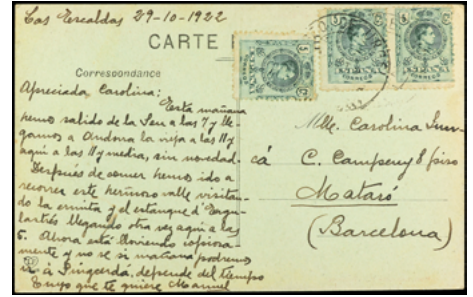 Las Escaldas 29-10-1922
CARTE
Correspondance
Apreciada Carolina:
Esta mañana
hemos salido de la Seu a las 7 y lle-
gamos a Andorra la vieja a las 11 y
aqui a las 11 y media, sin novedad.
Después de comer hemos ido a
recorrer este hermoso valle visitan-
do la ermita y el estanque d'Engo-
lasters llegando otra vez aqui a las
5. Ahora está lloviendo copiosa-
mente y no se si mañana podremos
ir á Puigcerdá, depende del tiempo
Tuyo que te quiere Manuel
Mlle. Carolina
cá C. Campeny 8 piso
Mataró
(Barcelona)
CORREOS
CORREOS